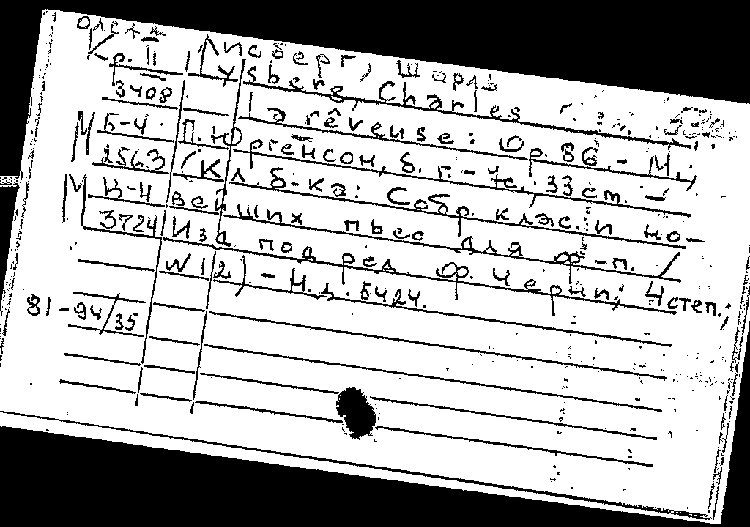 Лисберг, Шарль
Кр. II Lysberg, Charles
3408 La rêveuse: Op. 86. - М.;
М Б-4 П. Юргенсон, б. г. - 7с.; 33 см. -
2563 (Кл. б-ка: Собр. класс. и но-
М В-4 вейших пьес для ф.-п. /
3724 Изд. под ред. Ф. Черни; 4 степ.;
N 12) - Н. д. 5424.
81-94/35